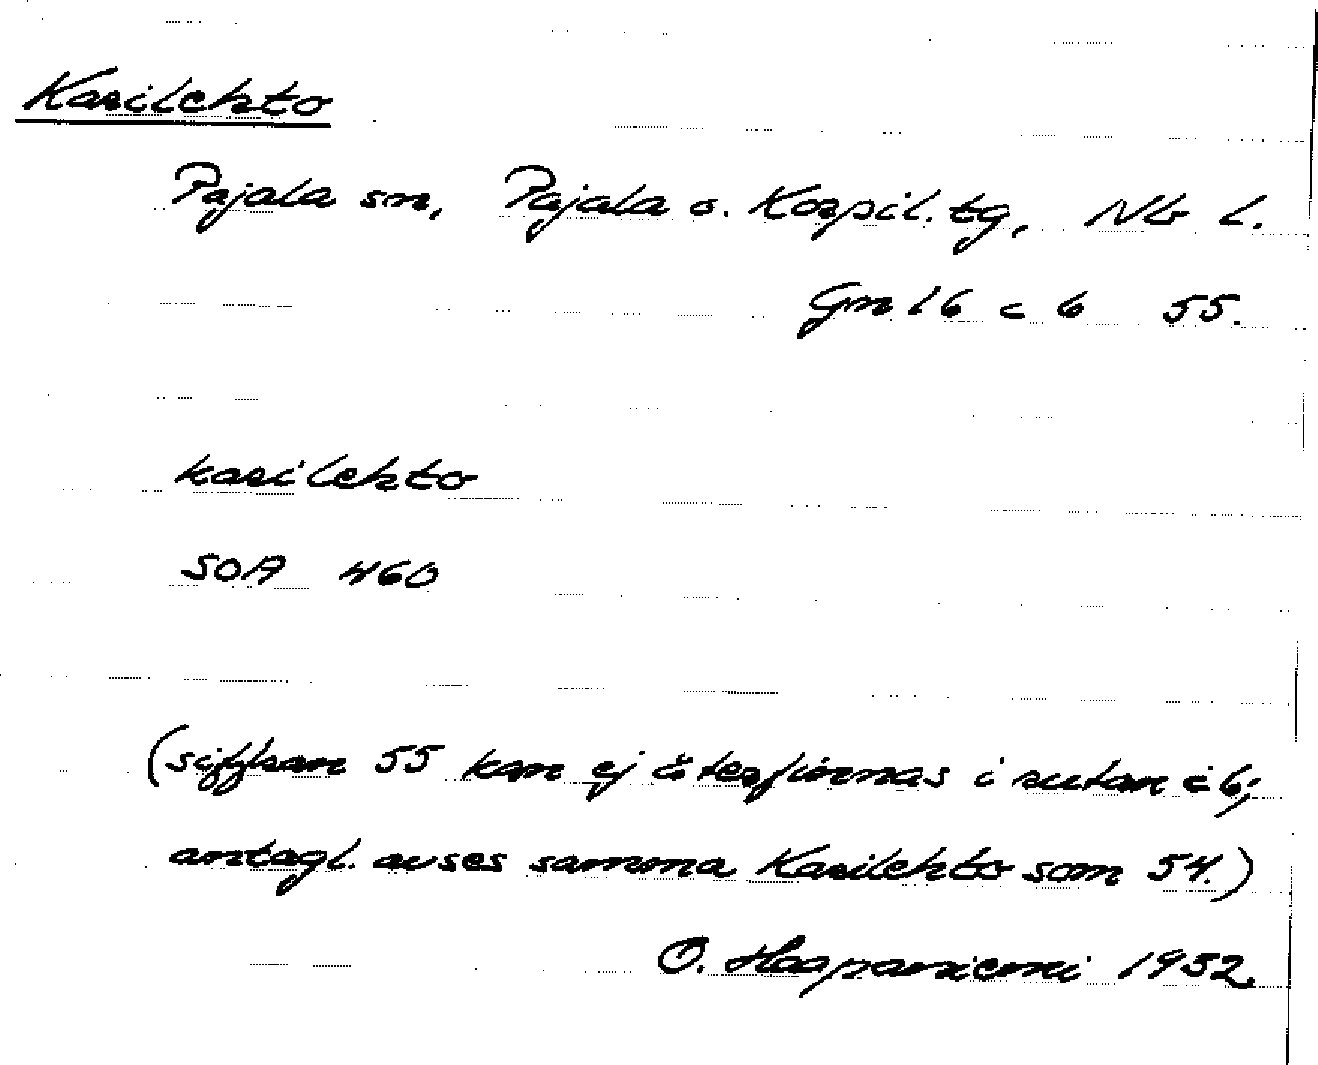 Karilehto
Pajala sn, Pajala o. Korpil. tg, Nb l.
Gm 16 c 6 55.
karilehto
SOA 460
(siffran 55 kan ej återfinnas i rutan c 6;
antagl. avses samma Karilehto som 54.)
O. Haapaniemi 1952.